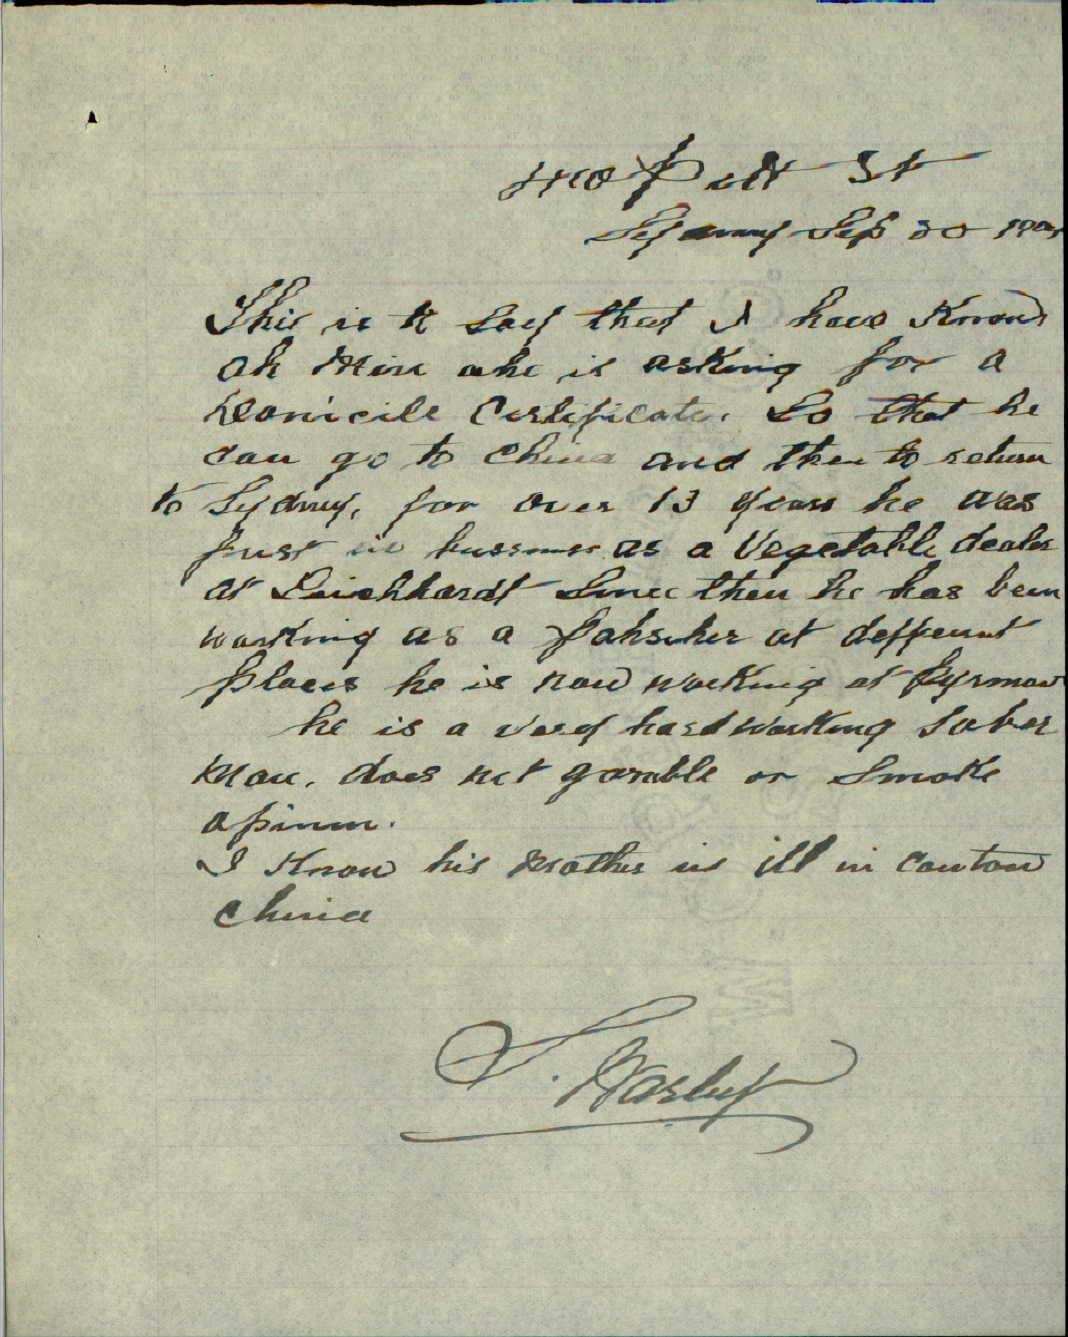 Pitt St
Sydney Sep 30
This is to say that I have Known
ah who is asking for a
Domicile Certificate. So that he
can go to China and then to return
to Sydney, for over 13 years he was
first in bussness as a Vegetable dealer
at Leichhardt Since then he has been
working as a at deffernt
places he is now working at Pyrmont
he is a very hard working Sober
Man. does not gamble or Smoke
opinm.
I Know his Mother is ill in Canton
China